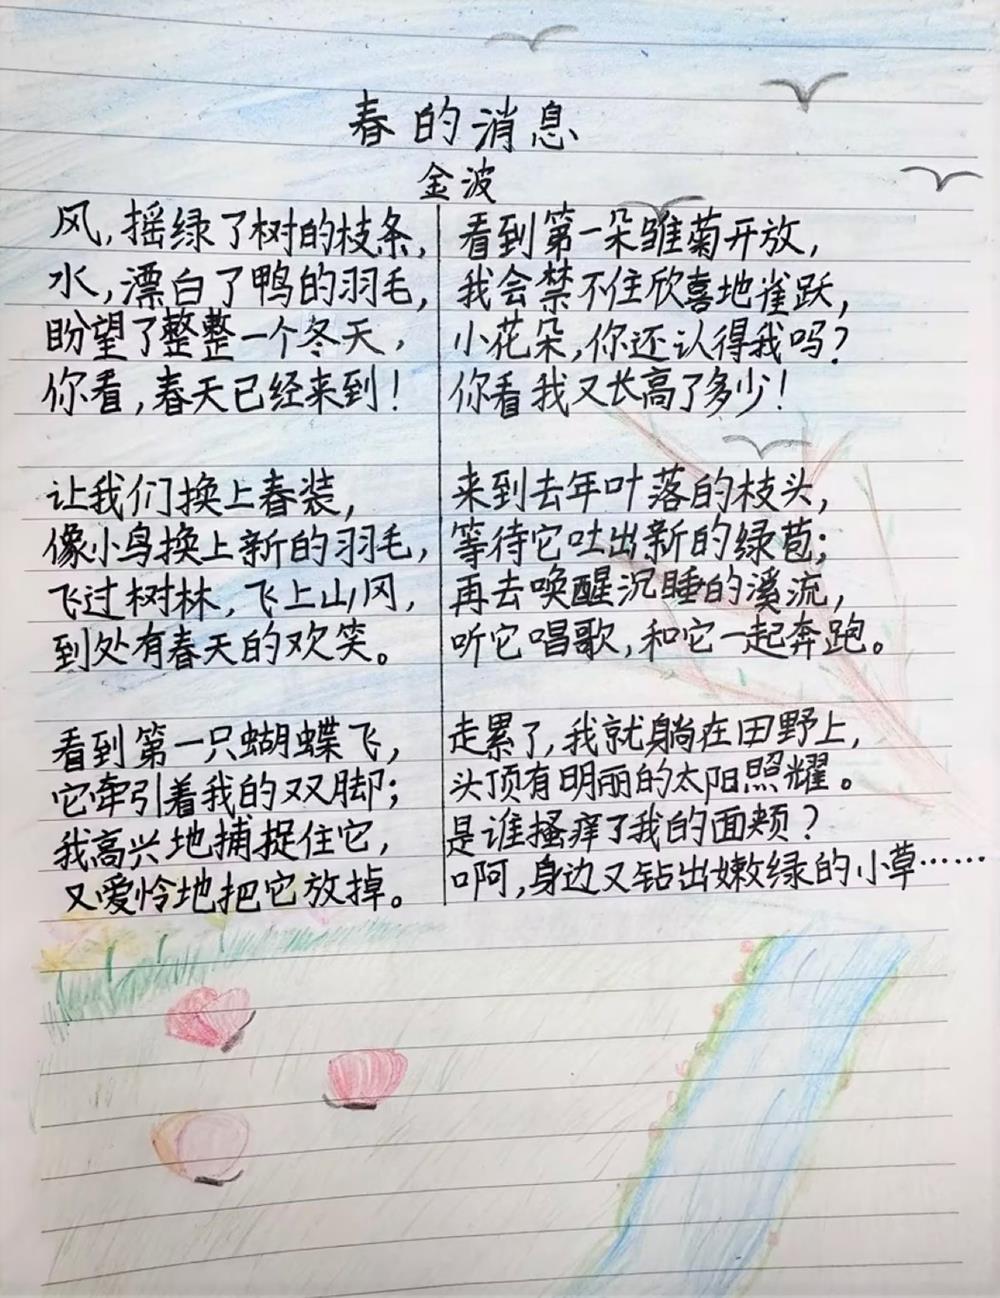 春的消息
金波
风，摇绿了树的枝条，
水，漂白了鸭的羽毛，
盼望了整整一个冬天，
你看，春天已经来到！
让我们换上春装，
像小鸟换上新的羽毛，
飞过树林，飞上山冈，
到处有春天的欢笑。
看到第一只蝴蝶飞，
它牵引着我的双脚；
我高兴地捕捉住它，
又爱怜地把它放掉。
看到第一朵雏菊开放，
我会禁不住欣喜地雀跃，
小花朵，你还认得我吗？
你看我又长高了多少！
来到去年叶落的枝头，
等待它吐出新的绿苞；
再去唤醒沉睡的溪流，
听它唱歌，和它一起奔跑。
走累了，我就躺在田野上，
头顶有明丽的太阳照耀。
是谁搔痒了我的面颊？
啊，身边又钻出嫩绿的小草……